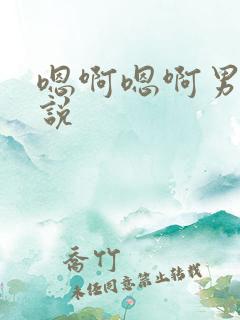 嗯啊嗯啊男
說
喬竹
未经同意禁止转载